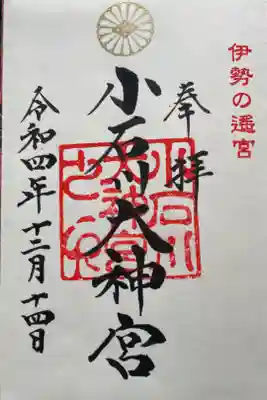 伊勢の遥宮
奉拝
小石川大神宮
令和四年十二月十四日